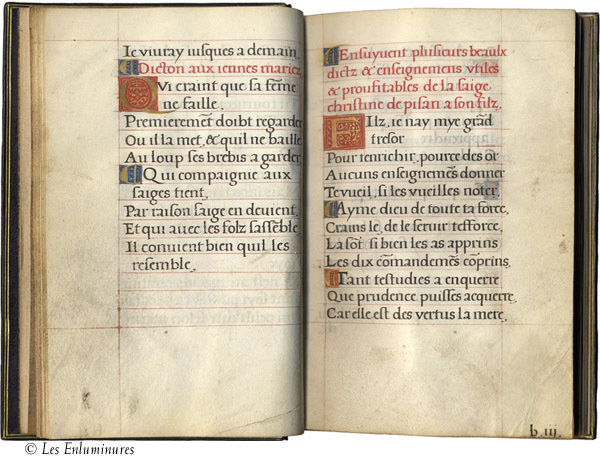 Ie viuray iusques a demain
Dicton aux iennes mariez
Qvi craint que sa fēme
ne faille.
Premieremēt doibt regarder
Ou il la met, & quil ne baille
Au loup ses brebis a garder
Qui compaignie aux
saiges tient,
Par raison saige en deuient.
Et qui auec les folz sassēble
Il conuient bien quil les
resemble.
Ensuyuent plusieurs beaulx
dictz & enseignemens vtiles
& proufitables de la saige
christine de pisan a son filz.
Filz, ie nay mye grād
tresor
Pour tenrichir, pource des or
Aucuns enseignemēs donner
Te vueil, si les vueilles noter.
Ayme dieu de toute ta force,
Crains le, de le seruir tefforce,
La sōt si bien les as apprins
Les dix cōmandemēs cōprins.
Tant testudies a enquerre
Que prudence puisses acquerre,
Car elle est des vertus la mere,
b.iij.
© Les Enluminures